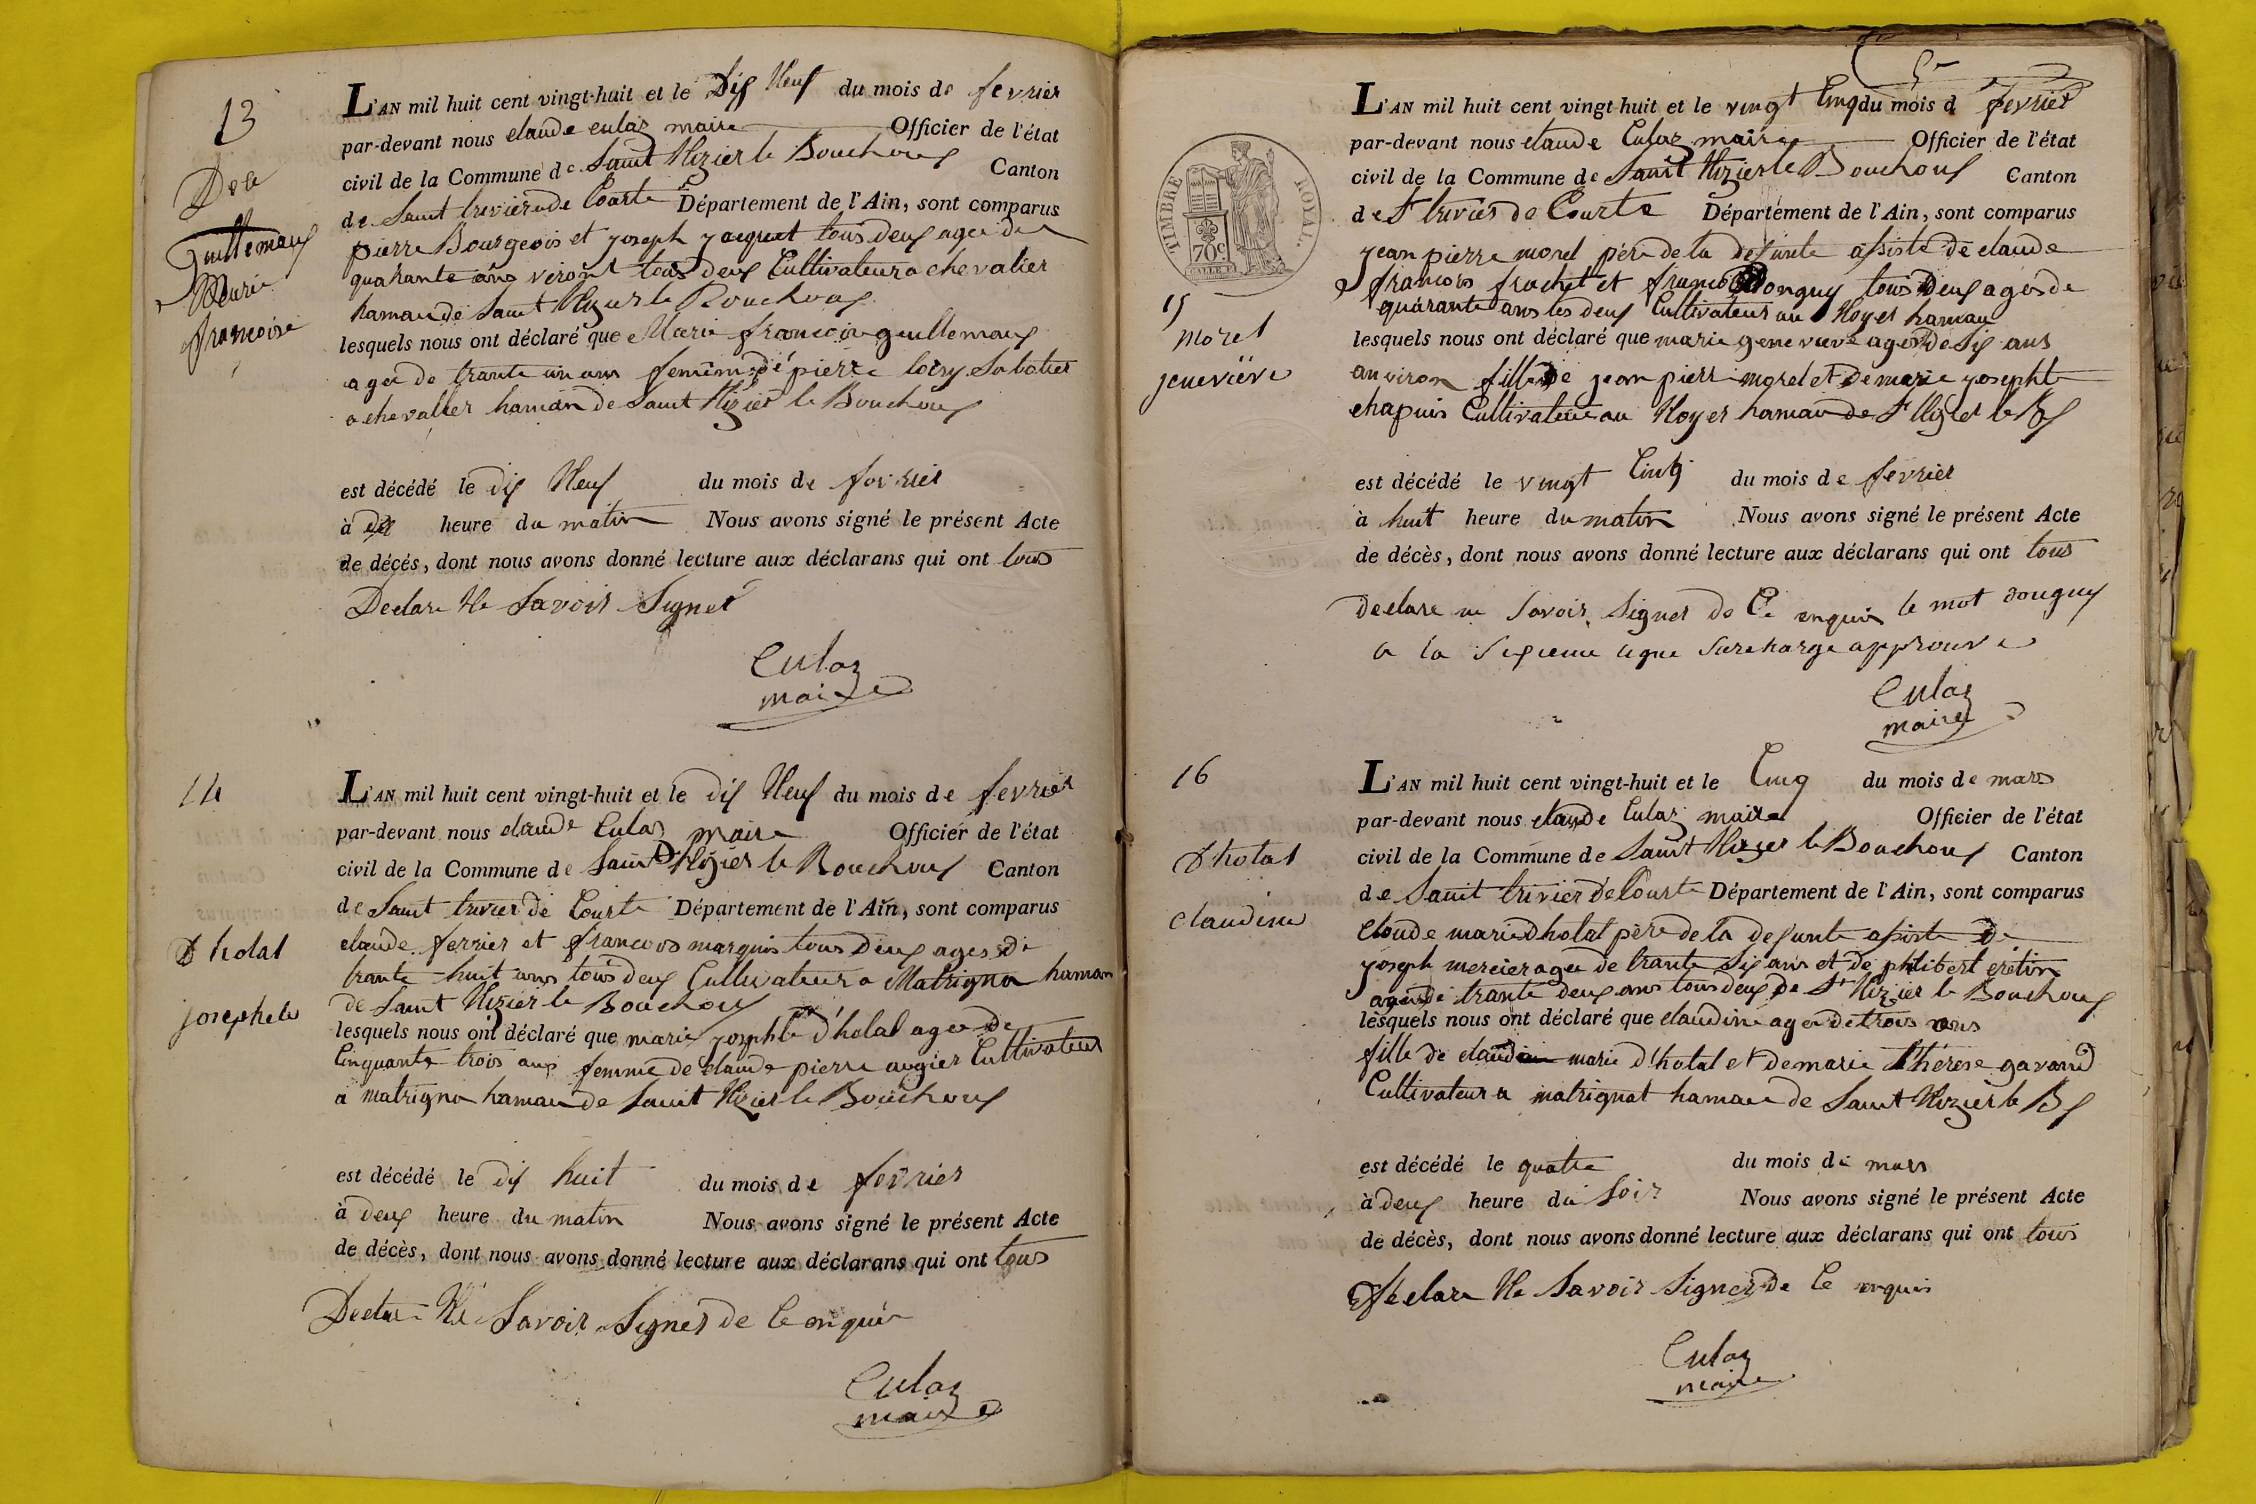 13
Dcé
Guillemaux
Marie
francoise
L'AN mil huit cent vingt-huit et le Dix Neuf du mois de fevrier
par-devant nous claude culaz maire Officier de l'état
civil de la Commune de Saint Nizier le Bouchoux Canton
de Saint trivier de Courte Département de l'Ain, sont comparus
pierre Bourgeois et joseph jacquet tous deux agee de
quarante ans viront tous deux Cultivateur a chevalier
hamau de Saint Nizier le Bouchoux
lesquels nous ont déclaré que Marie francoise guillemaux
agee de trante un ans femme de pierre loisy Sabotier
a chevallier hamau de Saint Nizier le Bouchoux
est décédé le dix Neuf du mois de fevrier
à heure du matin Nous avons signé le présent Acte
de décés, dont nous avons donné lecture aux déclarans qui ont tous
Declare Ne Savoir Signer
Culaz
maire
14
Dholat
josephete
L'AN mil huit cent vingt-huit et le dix Neuf du mois de fevrier
par-devant nous claude Culaz maire Officier de l'état
civil de la Commune de Saint Nizier le Bouchoux Canton
de Saint trivier de Courte Département de l'Ain, sont comparus
claude ferrier et francois marquis tous deux ages de
trante huit ans tous deux Cultivateur a Matrigna hamau
de Saint Nizier le Bouchoux
lesquels nous ont déclaré que marie josephte d'holal agee de
Cinquante trois ans femme de claude pierre augier Cultivateur
a matrigna hamau de Saint Nizier le Bouchoux
est décédé le dix huit du mois de fevrier
à deux heure du matin Nous avons signé le présent Acte
de décès, dont nous avons donné lecture aux déclarans qui ont tous
Declare Ne Savoir Signer de Ce enquis
Culaz
maire
5
TIMBRE ROYAL.
70c
15
morel
jeneviève
L'AN mil huit cent vingt-huit et le vingt Cinq du mois d fevrier
par-devant nous claude Culaz maire Officier de l'état
civil de la Commune de Saint Nizier le Bouchoux Canton
de St trivier de Courte Département de l'Ain, sont comparus
jean pierre morel père de la defunte assisté de claude
francois frachet et francois Donguy tous Deux agés de
quarante ans les deux Cultivateur au Noyer hamau
lesquels nous ont déclaré que marie genevieve agee de Six ans
anviron fille de jean pierre morel et de marie josephte
chapuis Cultivateur au Noyer hamau de St Nizier le Bx
est décédé le vingt Cinq du mois de fevrier
à huit heure du matin Nous avons signé le présent Acte
de décès, dont nous avons donné lecture aux déclarans qui ont tous
declare ne Savoir Signer de Ce enquis le mot donguy
a la Sixieme ligne Surcharge approuve
Culaz
maire
16
Dholat
claudine
L'AN mil huit cent vingt-huit et le Cinq du mois de mars
par-devant nous claude Culaz maire Officier de l'état
civil de la Commune de Saint Nizier le Bouchoux Canton
de Saint trivier de Courte Département de l'Ain, sont comparus
Cloude marie dholal père de la defunte assiste de
joseph mercier agee de trante Six ans et de philibert cretin
agee de trante deux ans tous deux de St Nizier le Bouchoux
lesquels nous ont déclaré que claudine agee de trois ans
fille de claude marie d'holal et de marie Thérèse gavand
Cultivateur a matrignat hamau de Saint Nizier le Bx
est décédé le quatre du mois de mars
à deux heure du Soir Nous avons signé le présent Acte
de décès, dont nous avons donné lecture aux déclarans qui ont tous
Declare Ne Savoir Signer de Ce enquis
Culaz
maire